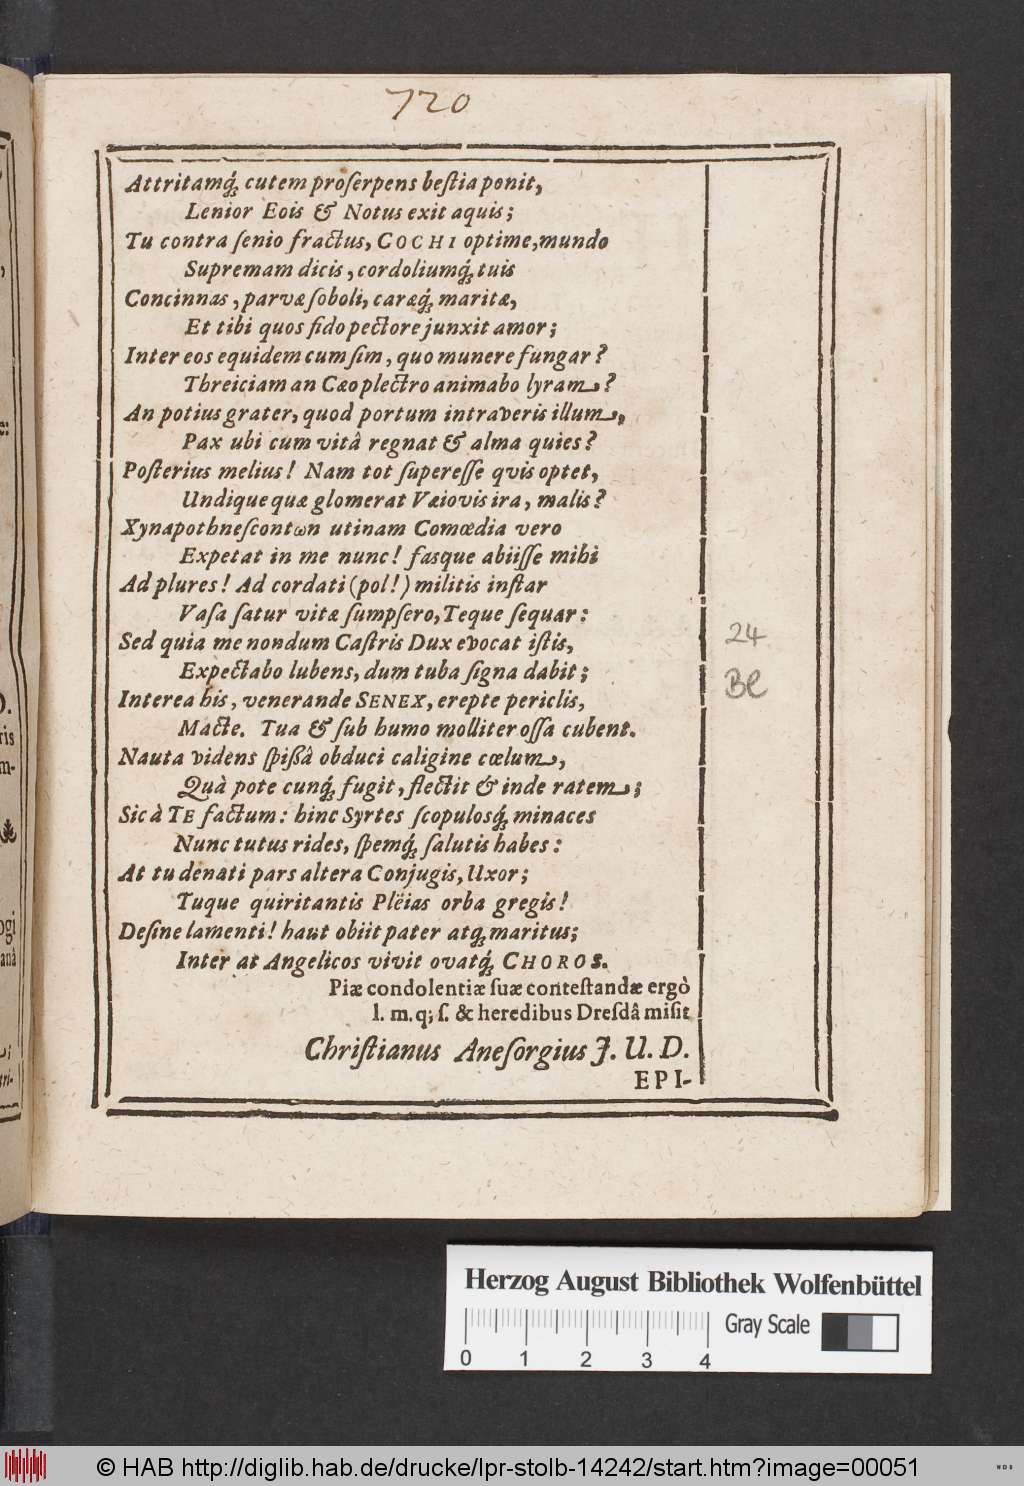 720
Attritamq́; cutem proſerpens beſtia ponit,
Lenior Eois & Notus exit aquis;
Tu contra ſenio fractus, COCHI optime, mundo
Supremam dicis, cordoliumq́; tuis
Concinnas, parvæ ſoboli, caræq́; maritæ,
Et tibi quos fido pectore junxit amor;
Inter eos equidem cum ſim, quo munere fungar?
Threiciam an Cæo plectro animabo lyram?
An potius grater, quod portum intraveris illum,
Pax ubi cum vitâ regnat & alma quies?
Poſterius melius! Nam tot ſupereſſe qvis optet,
Undique quæ glomerat Væiovis ira, malis?
Xynapothneſcontωn utinam Comœdia vero
Expetat in me nunc! faſque abiiſſe mihi
Ad plures! Ad cordati (pol!) militis inſtar
Vaſa ſatur vitæ ſumpſero, Teque ſequar:
Sed quia me nondum Caſtris Dux evocat iſtis,
Expectabo lubens, dum tuba ſigna dabit;
Interea his, venerande SENEX, erepte periclis,
Macte. Tua & ſub humo molliter oſſa cubent.
Nauta videns ſpißâ obduci caligine cœlum,
Quà pote cunq́; fugit, flectit & inde ratem;
Sic à TE factum: hinc Syrtes ſcopulosq́; minaces
Nunc tutus rides, ſpemq́; ſalutis habes:
At tu denati pars altera Conjugis, Uxor;
Tuque quiritantis Plëias orba gregis!
Deſine lamenti! haut obiit pater atq́; maritus;
Inter at Angelicos vivit ovatq́; CHOROS.
Piæ condolentiæ ſuæ conteſtandæ ergò
l. m. q; ſ. & heredibus Dreſdâ miſit
Chriſtianus Aneſorgius J. U. D.
EPI-
24
Be
Herzog August Bibliothek Wolfenbüttel
Gray Scale
0 1 2 3 4
© HAB http://diglib.hab.de/drucke/lpr-stolb-14242/start.htm?image=00051